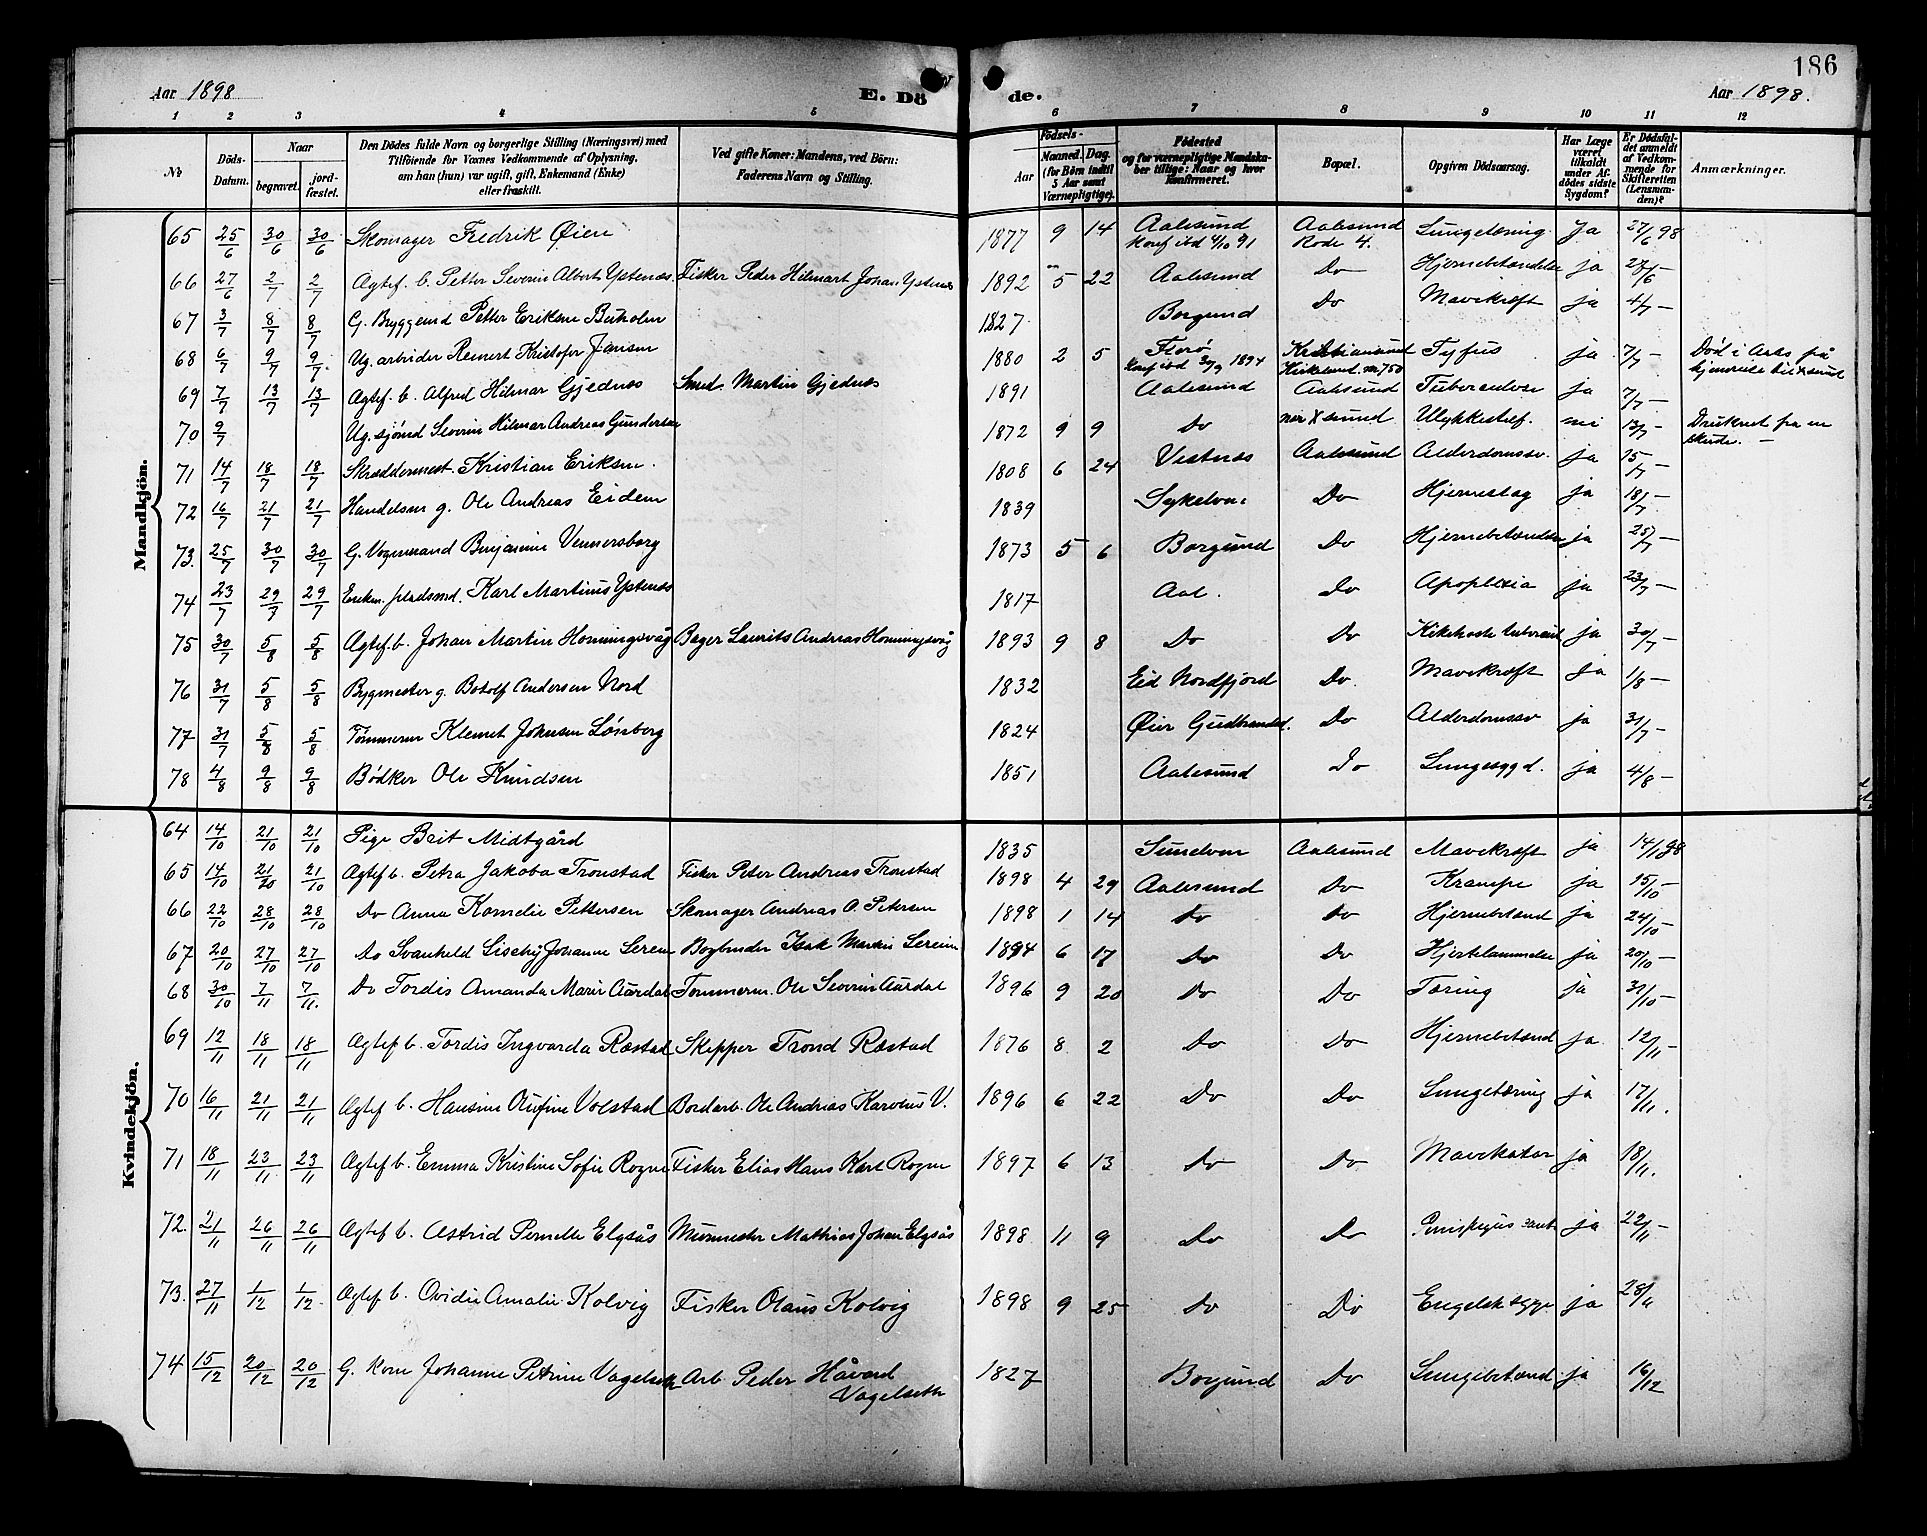 186
Aar 1898 E. Dö de. Aar 1898.
1 2 3 4 5 6 7 8 9 10 11 12
No Döds-Datum. Naar begravet. jord-fæstet. Den Dödes fulde Navn og borgerlige Stilling (Næringsvei) med Tilföiende for Voxnes Vedkommende af Oplysning, om han (hun) var ugift, gift, Enkemand (Enke) eller fraskilt. Ved gifte Koner: Mandens, ved Börn: Faderens Navn og Stilling. Födsels- Aar Maaned. Dag. (for Börn indtil 5 Aar samt Værnepligtige). Födested og for værnepligtige Mandskaber tillige: Naar og hvor Konfirmeret. Bopæl. Opgiven Dödsaarsag. Har Læge været tilkaldt under Afdödes sidste Sygdom? Er Dödsfaldet anmeldt af Vedkommende for Skifteretten (Lensmanden)? Anmærkninger.
Mandkjön.
65 25/6 30/6 30/6 Skomager Fredrik Øien 1877 9 14 Aalesund Konf ibd 4/10 91 Aalesund Rode 4. Lungetæring Ja 27/6 98
66 27/6 2/7 2/7 Ægtef. b. Petter Severin Albert Ystenæs Fisker Peder Hilmart Johan Ystenæs 1892 5 22 Aalesund Do Hjernebetændelse ja 27/6 -
67 3/7 8/7 8/7 G. Bryggemd Petter Eriksen Buholm 1827 Borgund Do Mavekræft ja 4/7 -
68 6/7 9/7 9/7 Ug. arbeider Reinert Kristofer Jansen 1880 2 5 Florø Konf ibd 30/9 1894 Kristiansund Kirkeland nr. 750 Tyfus ja 7/7 - Død i Aales på hjemreise til Xsund
69 7/7 13/7 13/7 Ægtef. b. Alfred Hilmar Gjednæs Smed. Martin Gjednæs 1891 Aalesund Aalesund Tuberculose ja 7/7 -
70 9/7 Ug. sjømd Severin Hilmar Andreas Gundersen 1872 9 9 Do nær Xsund Ulykkestilf. nei 13/7 - Druknet fra en skøite. -
71 14/7 18/7 18/7 Skræddermest. Kristian Eriksen. 1808 6 24 Vestnæs Aalesund Alderdomssv. ja 15/7 -
72 16/7 21/7 21/7 Handelsm g. Ole Andreas Eidem 1839 Sykelven Do Hjerneslag ja 18/7 -
73. 25/7 30/7 30/7 G. Vognmand Benjamin Vennersborg 1873 5 6 Borgund Do Hjernebetændelse ja 25/7 -
74 23/7 29/7 29/7 Enkem. pladsmd. Karl Martinus Ystenæs 1817 Aal. Do Apoplexia ja 23/7 -
75 30/7 5/8 5/8 Ægtef. b. Johan Martin Honningsvåg Bager Laurits Andreas Honningsvåg 1893 9 8 Do Do Kikehoste ja 30/7 -
76 31/7 5/8 5/8 Bygmester g. Botolf Andersen Nord 1832 Eid Nordfjord Do. Mavekræft Ja 1/8 -
77 31/7 5/8 5/8 Tømmerm Klemet Johnsen Løsberg 1824 Øier Gudbrandsd. Do Alderdomssv ja 31/7 -
78 4/8 9/8 9/8 Bødker Ole Knudsen 1851 Aalesund Do Lungesygd. ja 4/8 -
Kvindekjön.
64 14/10 21/10 21/10 Pige Brit Midtgård 1835 Sunelven Aalesund Mavekræft ja 14/10 98
65 14/10 21/10 21/10 Ægtef b. Petra Jakoba Tronstad Fisker Peter Andreas Tronstad 1898 4 29 Aalesund Do Krampe ja 15/10 -
66 22/10 28/10 28/10 Do Anna Kornelie Pettersen Skomager Andreas O. Petersen 1898 1 14 Do Do Hjernebetænd ja 24/10 -
67 20/10 27/10 27/10 Do Svanhild Johanne Bogbinder Isak Martin 1894 6 17 Do Do Hjertelammelse ja 20/10 -
68 30/10 7/11 7/11. Do Tordis Amanda Marie Aardal Tømmerm. Ole Severin Aardal 1896 9 20 Do Do Tæring ja 31/10 -
69 12/11 18/11 18/11 Ægtef b. Tordis Ingvarda Ræstad Skipper Trond Ræstad 1876 8 2 Do Do Hjernebetænd ja 12/11 -
70 16/11 21/11 21/11 Ægtef b. Hansine Olufine Volstad Bordarb. Ole Andreas Karolus V. 1896 6 22 Do Do Lungetæring ja 17/11.
71 18/11 23/11 23/11 Ægtef b. Emma Kristine Sofie Rogne Fisker Elias Hans Karl Rogne 1897 6 13 Do Do Mavekatar ja 18/11.
72. 21/11 26/11 26/11 Ægtef b. Astrid Pernelle Elgsås Murmester Mathias Johan Elgsås 1898 11 9 Do Do ja 22/11 -
73. 27/11 1/12 1/12. Ægtef b. Ovidie Amalie Kolvig Fisker Olaus Kolvig 1898 9 25 Do Do Engelsk syge ja 28/11
74 15/12 20/12 20/12 G. kone Johanne Petrine Vagelseth Arb Peder Håvard Vagelseth 1827 Borgund Do Lungebetænd ja 16/12